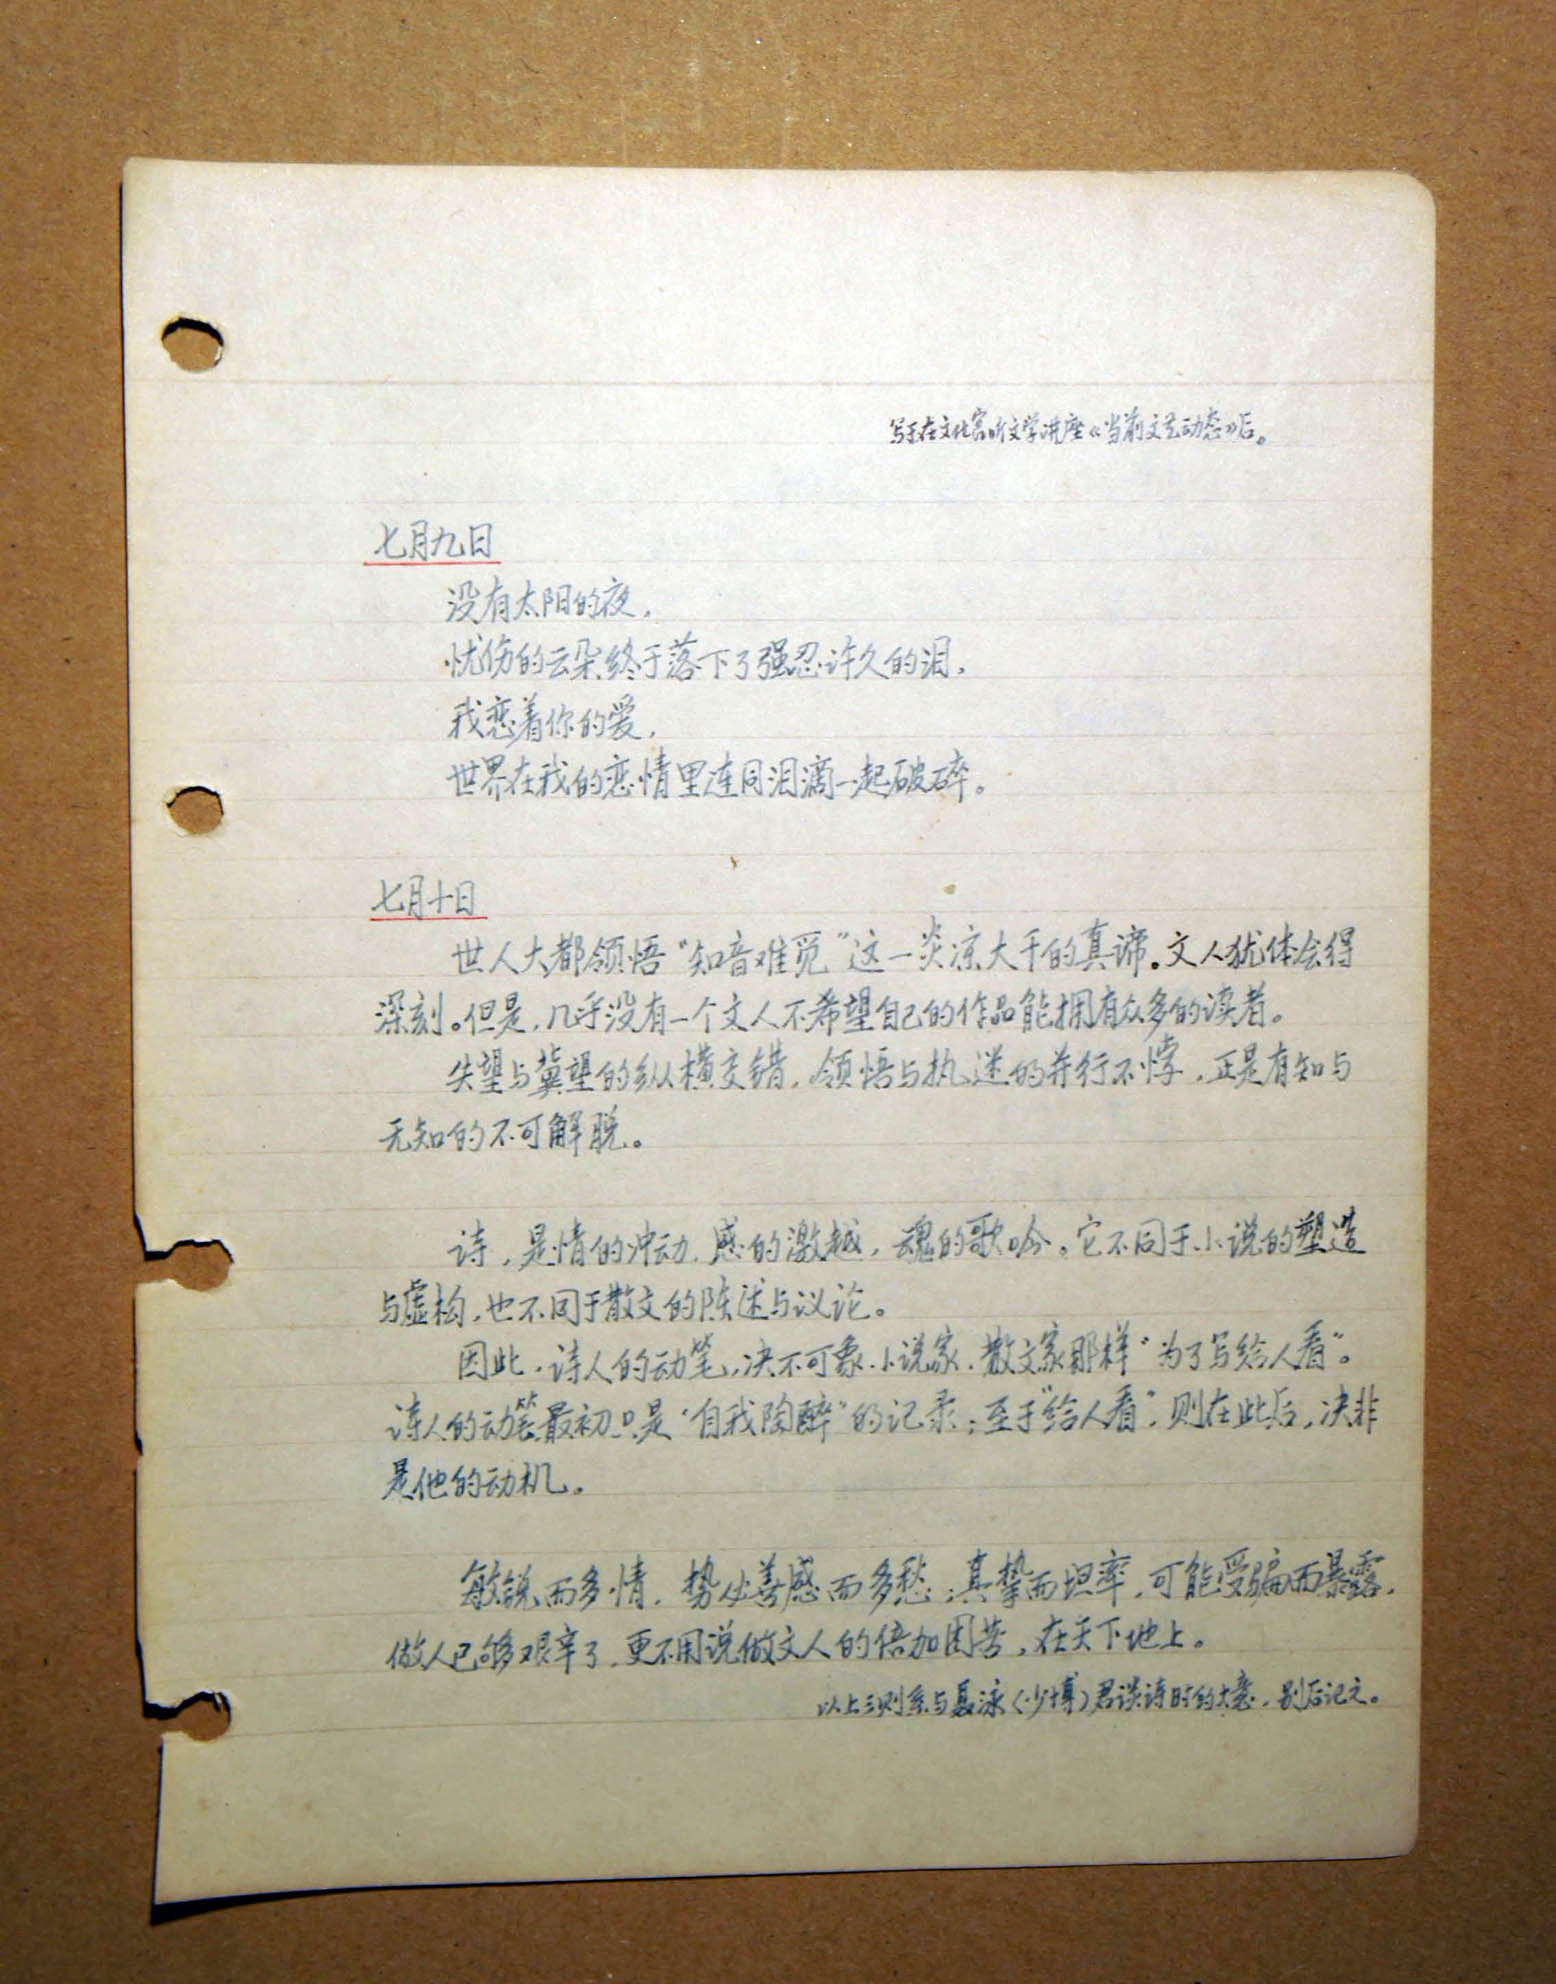 写于在文化宫听文学讲座《当前文艺动态》后。
七月九日
没有太阳的夜，
忧伤的云朵终于落下了强忍许久的泪，
我恋着你的爱，
世界在我的恋情里连同泪滴一起破碎。
七月十日
世人大都领悟“知音难觅”这一炎凉大千的真谛。文人犹体会得
深刻。但是，几乎没有一个文人不希望自己的作品能拥有众多的读者。
失望与冀望的纵横交错，领悟与执迷的并行不悖，正是有知与
无知的不可解脱。
诗，是情的冲动，感的激越，魂的歌吟。它不同于小说的塑造
与虚构，也不同于散文的陈述与议论。
因此，诗人的动笔，决不可象小说家、散文家那样“为了写给人看”。
诗人的动笔最初只是“自我陶醉”的记录；至于“给人看”，则在此后，决非
是他的动机。
敏锐而多情，势必善感而多愁；真挚而坦率，可能受骗而暴露。
做人已够艰辛了，更不用说做文人的倍加困苦，在天下地上。
以上三则系与聂泳（少博）君谈诗时的大意，别后记之。